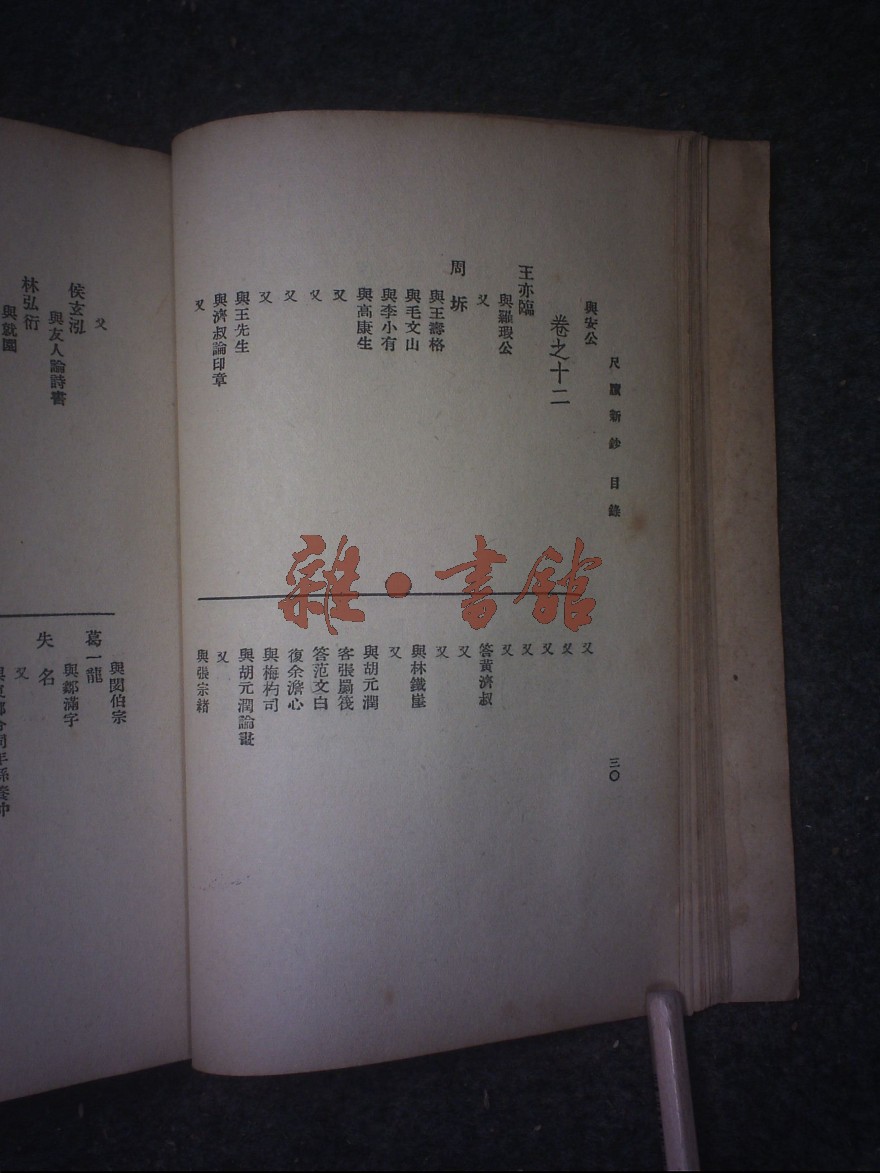 尺牘新鈔 目錄
三〇
與安公
卷之十二
王亦臨
與羅瑕公
又
周坼
與王壽格
與毛文山
與李小有
與高康生
又
又
又
又
與王先生
與濟叔論印章
又
又
又
又
又
又
答黃濟叔
又
又
與林鐵崖
又
與胡元潤
客張屬筏
答范文白
復余澹心
與梅杓司
與胡元潤論畫
又
與張宗緒
雜·書館
又
侯玄泓
與友人論詩書
林弘衍
與就園
與閔伯宗
葛一龍
與鄒滿字
失名
又